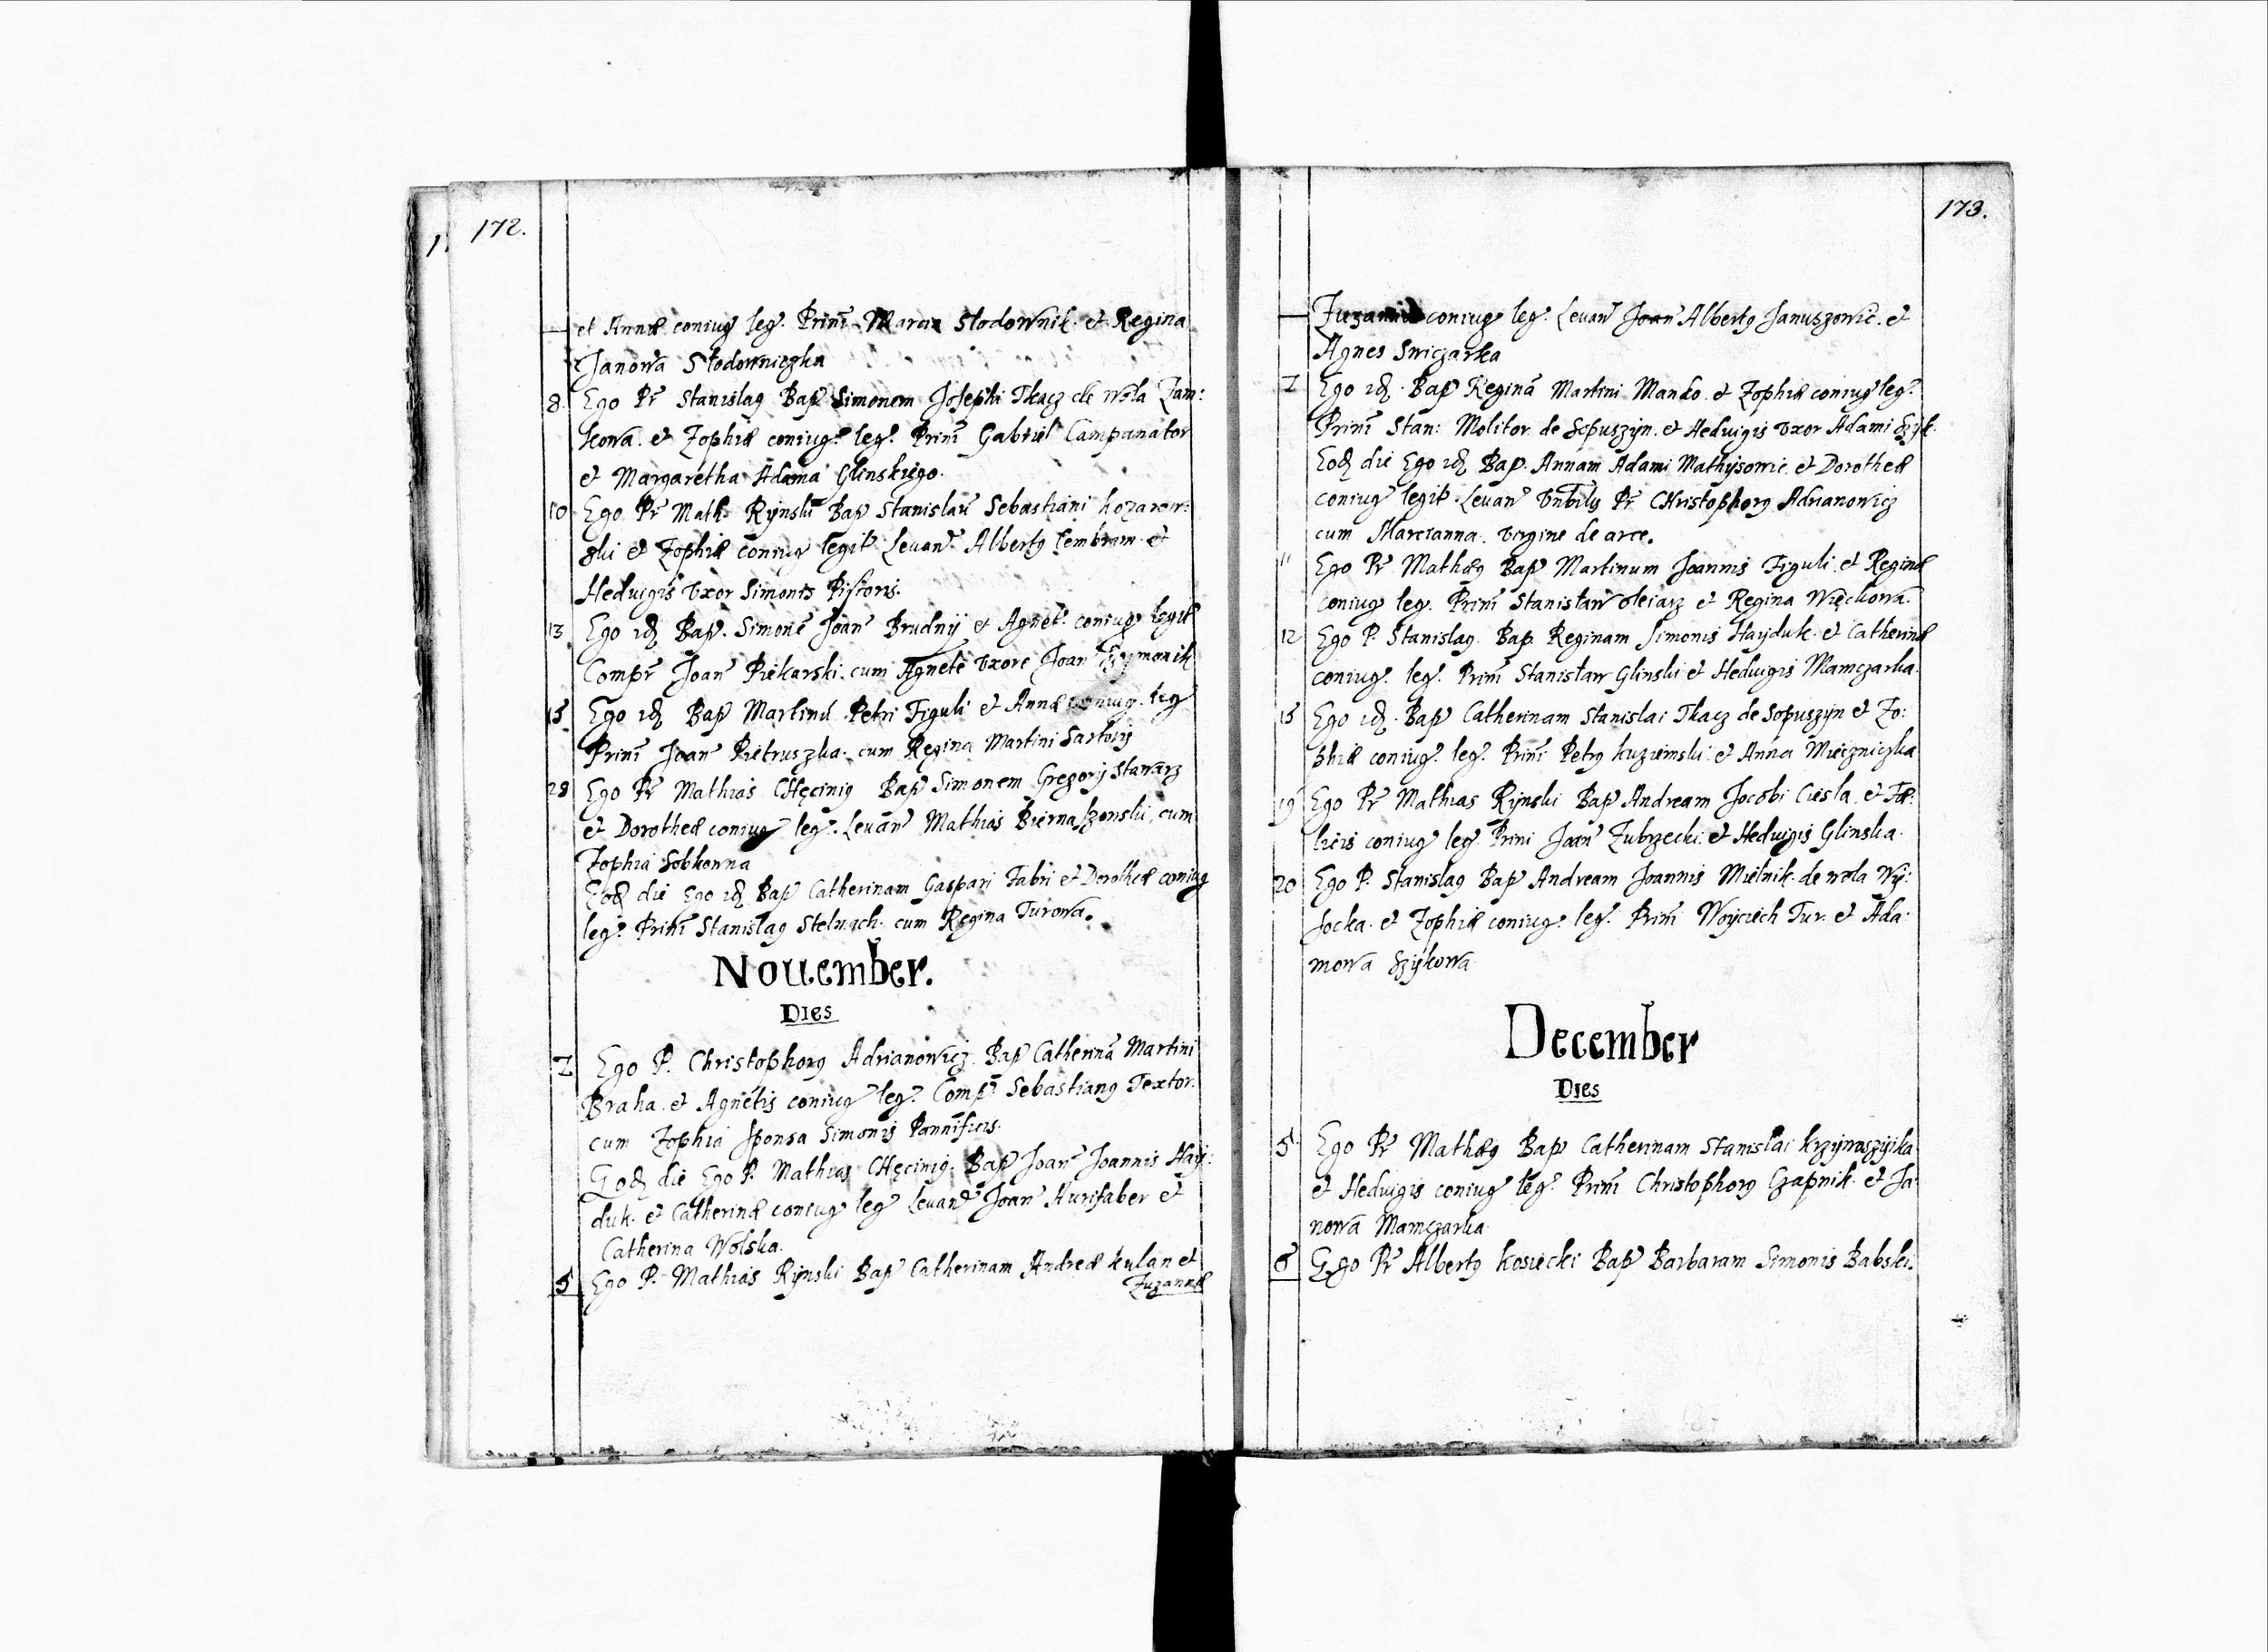 172.
et Annæ coniug leg. Prim Marcin Słodownik. et Regina
Janowa Słodowniczka
8. Ego Pr Stanislaq Bap Simonem Josephi Tkacz de Wola Zam:
kowa. et Zophiæ coniug. leg. Prim Gabriel Campanator
et Margaretha Adama Glinskiego.
10 Ego Pr Math. Rynski Bap Stanislau Sebastiani Kozarow:
ski et Zophiæ coniug legit Leuan Albertq Cembram. et
Heduigis vxor Simonis Pistoris.
13 Ego id Bap. Simone Joan Brudny et Agnet. coniug legit
Compr Joan Piekarski. cum Agnete vxore Joan Szymonik
15 Ego id Bap Martinu Petri Figuli et Annæ coniug. leg
Prim Joan Pietruszka. cum Regina Martini Sartoris
28 Ego Pr Mathias CHęcinig Bap Simonem Gregorij Stawarz
et Dorotheæ coniug leg. Leuan Mathias Biernaszonski, cum
Zophia Sobkonna
Eod die Ego id Bap Catherinam Gaspari Fabri et Dorotheæ coniug
leg. Prim Stanislaq Stelmach. cum Regina Turowa.
Nouember.
Dies
Z Ego P. Christophorq Adrianowicz. Bap Catherina Martini
Braha. et Agnetis coniug leg. Comp Sebastianq Textor.
cum Zophia sponsa Simonis Pannificis.
Eod die Ego P. Mathias CHęcinig. Bap Joan Joannis Hay:
duk. et Catherinæ coniug leg Leuan Joan Aurifaber et
Catherina Wolska.
5 Ego P. Mathias Rynski Bap Catherinam Andreæ Kulan et
Zuzannæ
173.
Zuzannæ coniug leg. Leuan Joan Albertq Januszowic. et
Agnes Swiczarka
7 Ego id. Bap Regina Martini Manko. et Zophiæ coniug leg.
Prim Stan: Molitor de Sopuszyn. et Heduigis vxor Adami Szyk.
Eod die Ego id Bap. Annam Adami Mathysowic. et Dorotheæ
coniug legit. Leuan Vnbilq Pr CHristophorq Adrianowicz
cum Marcianna. virgine de arce.
11 Ego Pr Mathæq Bap Martinum Joannis Figuli. et Reginæ
coniug leg. Prim Stanisław oleiarz et Regina Więckowa.
12 Ego P. Stanislaq. Bap. Reginam Simonis Hayduk. et Catherinæ
coniug. leg. Prim Stanisław Glinski et Heduigis Mamczarka.
15 Ego id. Bap Catherinam Stanislai Tkacz de Sopuszyn et Zo:
phiæ coniug. leg. Prim Petrq Kuzemski. et Anna Mieczniczka
19 Ego Pr Mathias Rynski Bap Andream Jocobi Ciesla. et Fæ:
licis coniug leg. Prini Joan Zubrzecki. et Heduigis Glinska.
20 Ego P. Stanislaq Bap Andream Joannis Mielnik. de wola Wy:
socka. et Zophiæ coniug. leg. Prim Woyciech Tur. et Ada:
mowa Szykowa
December
Dies
5. Ego Pr Mathæq Bap Catherinam Stanislai Krzywaszyika
et Heduigis coniug leg. Prim Christophorq Czapnik. et Ja:
nowa Mamczarka.
6 Ego Pr Albertq Kosiecki Bap Barbaram Simonis Babski.